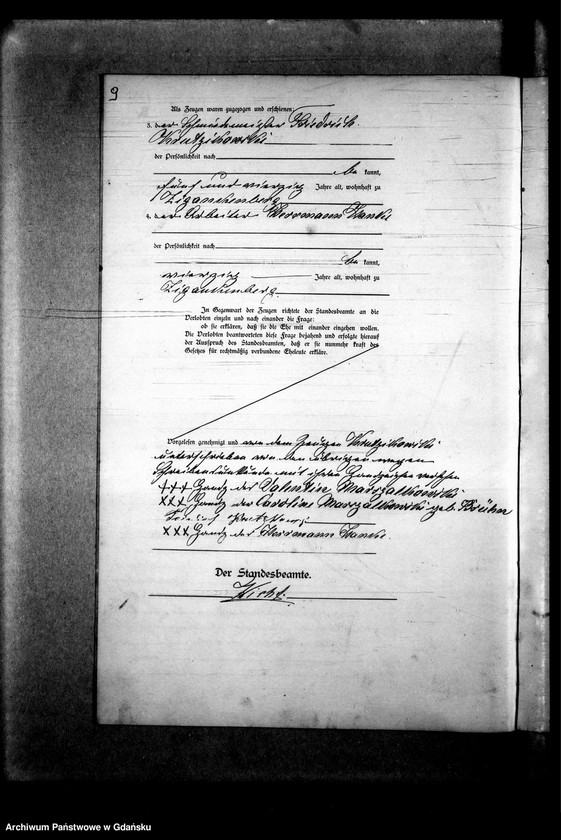 9
Als Zeugen waren zugezogen und erschienen:
3. der Schmiedemeister Friedrich
der Persönlichkeit nach
be kannt,
fünf und vierzig Jahre alt, wohnhaft zu
Zigankenberg
4. der Arbeiter Herrmann
der Persönlichkeit nach
be kannt,
vierzig Jahre alt, wohnhaft zu
Zigankenberg.
In Gegenwart der Zeugen richtete der Standesbeamte an die
Verlobten einzeln und nach einander die Frage:
ob sie erklären, daß sie die Ehe mit einander eingehen wollen.
Die Verlobten beantworteten diese Frage bejahend und erfolgte hierauf
der Ausspruch des Standesbeamten, daß er sie nunmehr kraft des
Gesetzes für rechtmäßig verbundene Eheleute erkläre.
Vorgelesen genehmigt und von dem Zeugen
unterschrieben von den übrigen wegen
Schreibensunkunde mit ihren Handzeichen versehen
+++ Handz. des Valentin Marszalkowski
XXX Handz. der Caroline Marszalkowski geb.
XXX Handz. des Herrmann
Der Standesbeamte.
Archiwum Państwowe w Gdańsku